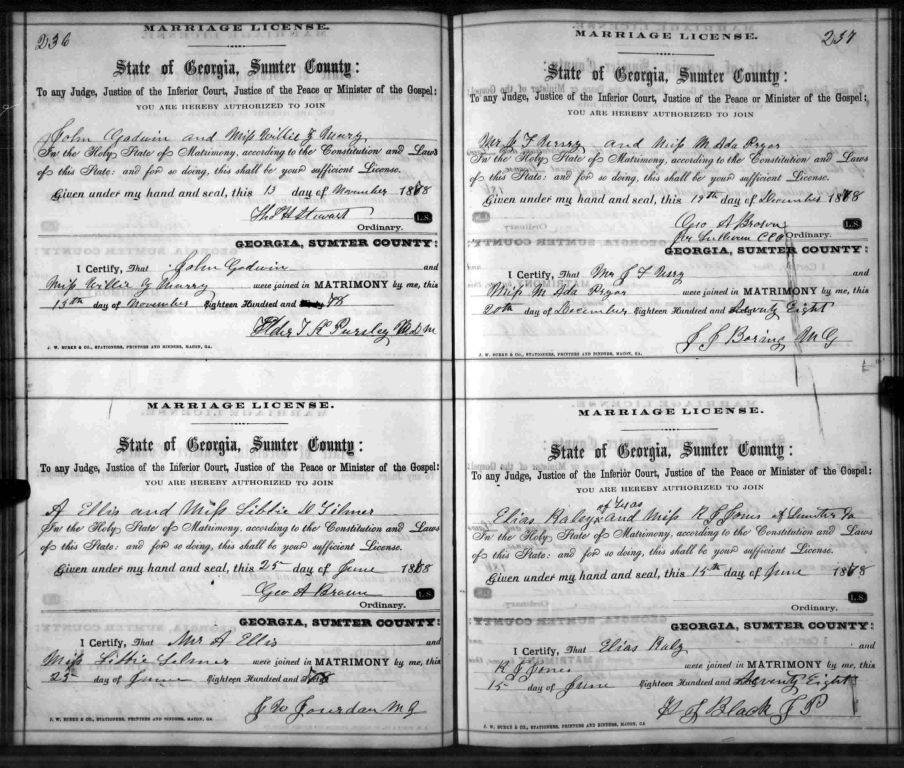 236
MARRIAGE LICENSE.
State of Georgia, Sumter County:
To any Judge, Justice of the Inferior Court, Justice of the Peace or Minister of the Gospel:
YOU ARE HEREBY AUTHORIZED TO JOIN
John Godwin and Miss Willie
In the Holy State of Matrimony, according to the Constitution and Laws
of this State: and for so doing, this shall be your sufficient License.
Given under my hand and seal, this 13 day of November 1878
Thos H Stewart L.S.
Ordinary.
GEORGIA, SUMTER COUNTY:
I Certify, That John Godwin and
Miss Willie were joined in MATRIMONY by me, this
day of November Eighteen Hundred and 78
Elder T. K. Pursley
J. W. BURKE & CO., STATIONERS, PRINTERS AND BINDERS, MACON, GA.
MARRIAGE LICENSE.
State of Georgia, Sumter County:
To any Judge, Justice of the Inferior Court, Justice of the Peace or Minister of the Gospel:
YOU ARE HEREBY AUTHORIZED TO JOIN
A Ellis and Miss Libbie D Gilmer
In the Holy State of Matrimony, according to the Constitution and Laws
of this State: and for so doing, this shall be your sufficient License.
Given under my hand and seal, this 25 day of June 1878
Geo A Brown L.S.
Ordinary.
GEORGIA, SUMTER COUNTY:
I Certify, That Mr A Ellis and
Miss were joined in MATRIMONY by me, this
25 day of June Eighteen Hundred and 78
J W Jourdan M G
J. W. BURKE & CO., STATIONERS, PRINTERS AND BINDERS, MACON, GA.
237
MARRIAGE LICENSE.
State of Georgia, Sumter County:
To any Judge, Justice of the Inferior Court, Justice of the Peace or Minister of the Gospel:
YOU ARE HEREBY AUTHORIZED TO JOIN
Mr J F and Miss M Ada Pryor
In the Holy State of Matrimony, according to the Constitution and Laws
of this State: and for so doing, this shall be your sufficient License.
Given under my hand and seal, this 19th day of December 1878
Geo A Brown L.S.
Ordinary.
GEORGIA, SUMTER COUNTY:
I Certify, That Mr J F and
Miss M Ada Pryor were joined in MATRIMONY by me, this
20th day of December Eighteen Hundred and Seventy Eight
J J Boring M G
J. W. BURKE & CO., STATIONERS, PRINTERS AND BINDERS, MACON, GA.
MARRIAGE LICENSE.
State of Georgia, Sumter County:
To any Judge, Justice of the Inferior Court, Justice of the Peace or Minister of the Gospel:
YOU ARE HEREBY AUTHORIZED TO JOIN
Elias Raley and Miss K J Jones of Sumter Ga
In the Holy State of Matrimony, according to the Constitution and Laws
of this State: and for so doing, this shall be your sufficient License.
Given under my hand and seal, this 15th day of June 1878
L.S.
Ordinary.
GEORGIA, SUMTER COUNTY:
I Certify, That Elias Raly and
K J Jones were joined in MATRIMONY by me, this
15 day of June Eighteen Hundred and Seventy Eight
Black J P
J. W. BURKE & CO., STATIONERS, PRINTERS AND BINDERS, MACON, GA